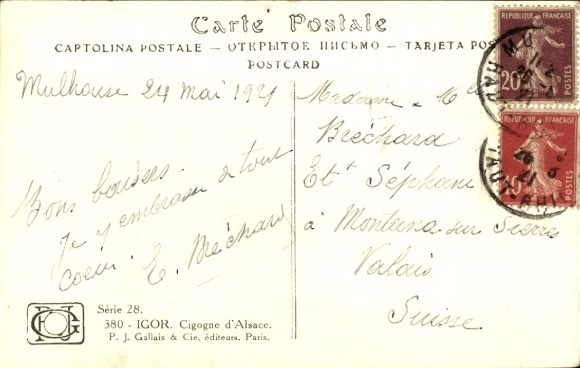 Carte Postale
CARTOLINA POSTALE — ОТКРЫТОЕ ПИСЬМО — TARJETA POS
POSTCARD
Mulhouse 24 mai 1921
Bons baisers
Je
embrasse de tout
coeur E. Bréchard
Madame
Bréchard
Et Séphanie
à Montana sur Sierres
Valais
Suisse
RÉPUBLIQUE FRANÇAISE
20
POSTES
RÉPUBLIQUE FRANÇAISE
10
POSTES
Série 28.
380 - IGOR. Cigogne d'Alsace.
P. J. Gallais & Cie, éditeurs, Paris.